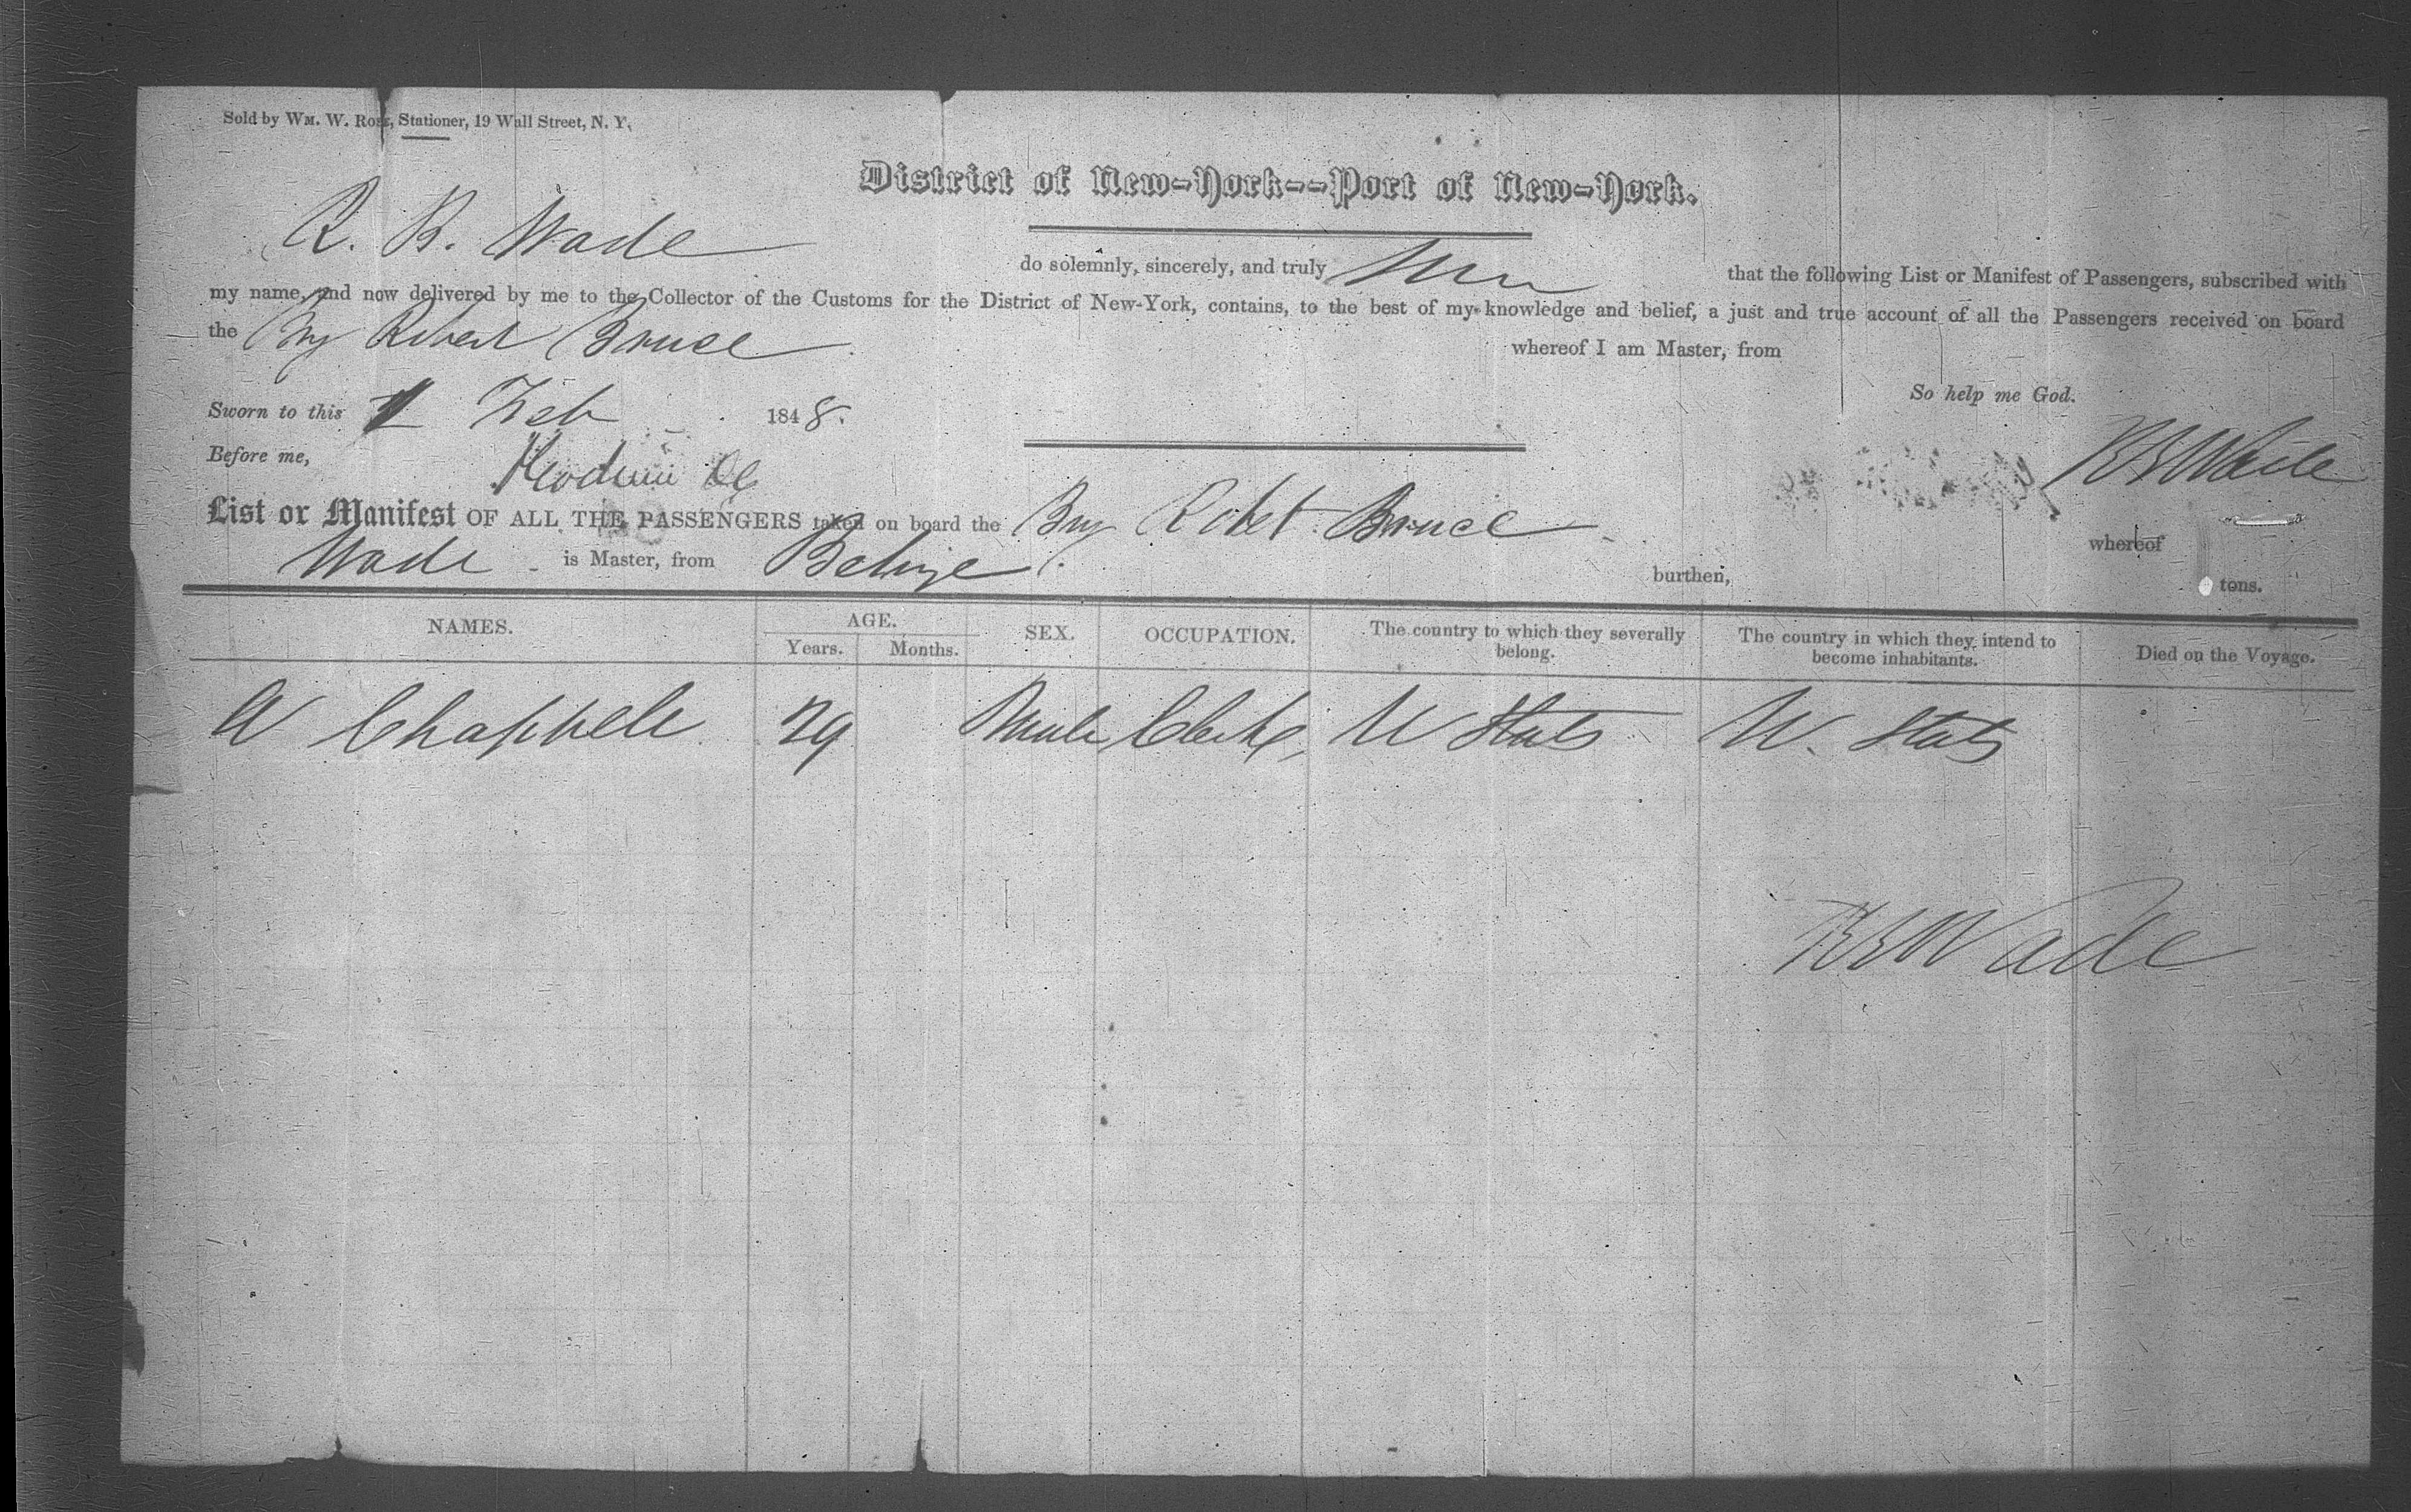 Sold by WM. W. Rose, Stationer, 19 Wall Street, N. Y.
District of New-York--Port of New-York.
R. B. Wade do solemnly, sincerely, and truly that the following List or Manifest of Passengers, subscribed with
my name, and now delivered by me to the Collector of the Customs for the District of New-York, contains, to the best of my knowledge and belief, a just and true account of all the Passengers received on board
the Brig Robert Bruce whereof I am Master, from
So help me God.
Sworn to this 1 Feb 1848.
Before me,
R B Wade
List or Manifest OF ALL THE PASSENGERS taken on board the Brig Robet Bruce whereof
Wade is Master, from Belize burthen, tons.
NAMES. AGE. SEX. OCCUPATION. The country to which they severally belong. The country in which they intend to become inhabitants. Died on the Voyage.
Years. Months.
W Chappell 29 Male Clerk U States U. States
R B Wade